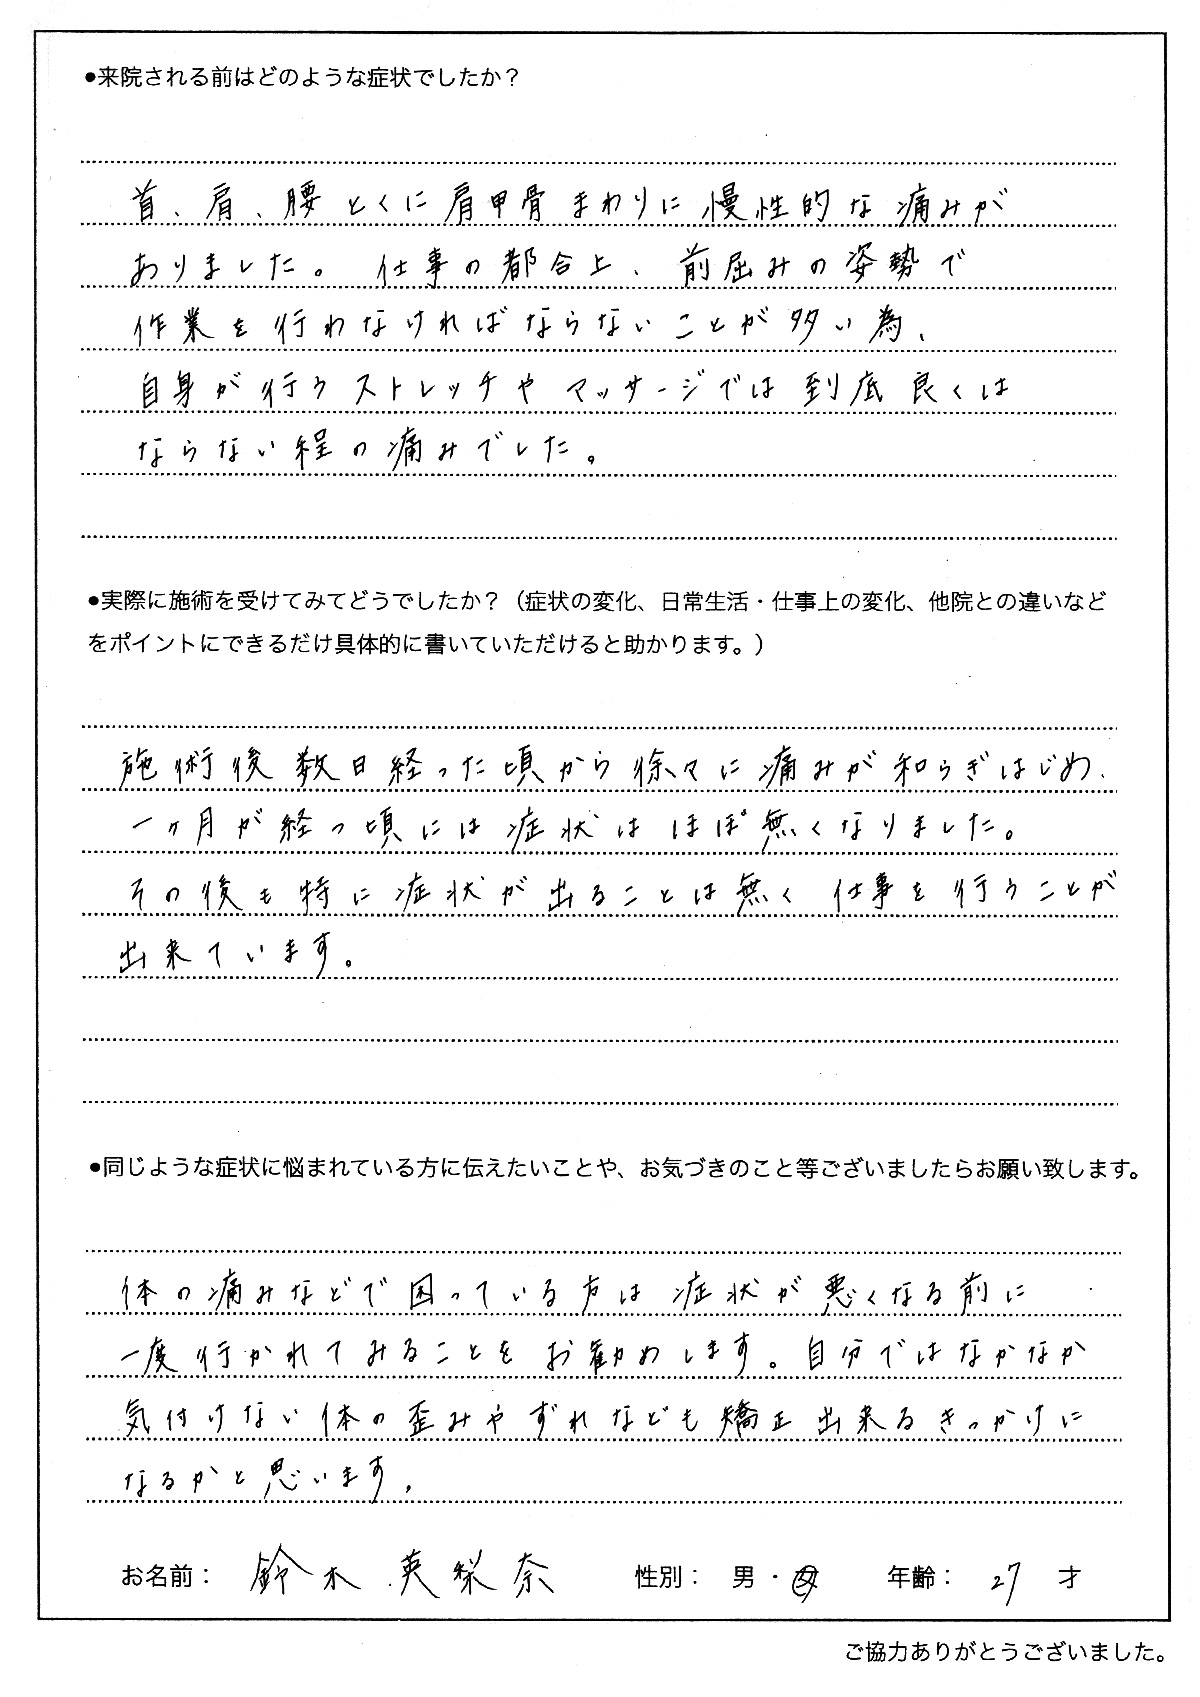 ●来院される前はどのような症状でしたか？
首、肩、腰とくに肩甲骨まわりに慢性的な痛みが
ありました。仕事の都合上、前屈みの姿勢で
作業を行わなければならないことが多い為、
自身が行うストレッチやマッサージでは到底良くは
ならない程の痛みでした。
●実際に施術を受けてみてどうでしたか？（症状の変化、日常生活・仕事上の変化、他院との違いなど
をポイントにできるだけ具体的に書いていただけると助かります。）
施術後数日経った頃から徐々に痛みが和らぎはじめ、
一ヶ月が経つ頃には症状はほぼ無くなりました。
その後も特に症状が出ることは無く仕事を行うことが
出来ています。
●同じような症状に悩まれている方に伝えたいことや、お気づきのこと等ございましたらお願い致します。
体の痛みなどで困っている方は症状が悪くなる前に
一度行かれてみることをお勧めします。自分ではなかなか
気付けない体の歪みやずれなども矯正出来るきっかけに
なるかと思います。
お名前：鈴木 英梨奈 性別：男・女 年齢：27才
ご協力ありがとうございました。